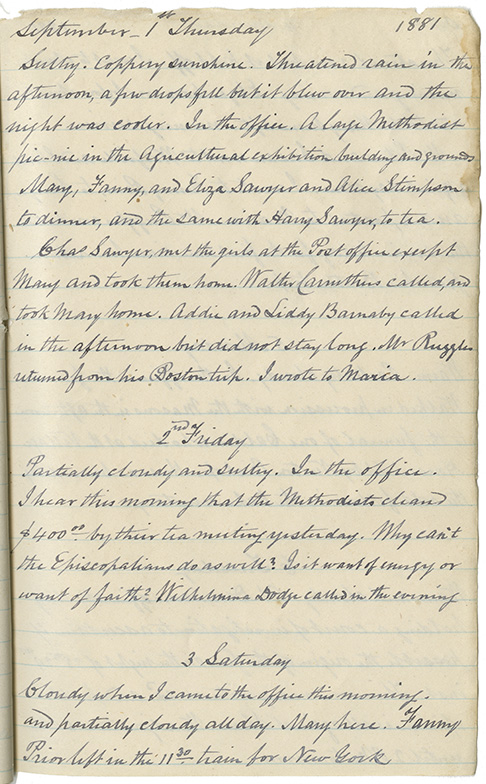 September - 1st Thursday 1881
Sultry. Coppery sunshine. Threatened rain in the
afternoon, a few drops fell but it blew over and the
night was cooler. In the office. A large Methodist
pic-nic in the Agricultural exhibition building and grounds
Mary, Fanny, and Eliza Sawyer and Alice Stimpson
to dinner, and the same with Harry Sawyer, to tea.
Chas Sawyer, met the girls at the Post office except
Mary and took them home. Walter Carruthers called, and
took Mary home. Addie and Liddy Barnaby called
in the afternoon but did not stay long. Mr Ruggles
returned from his Boston trip. I wrote to Maria.
2nd Friday
Partially cloudy and sultry. In the office.
I hear this morning that the Methodists cleared
$400.00 by thier tea meeting yesterday. Why can't
the Episcopalians do as well? Is it want of energy or
want of faith? Wilhelmina Dodge called in the evening
3 Saturday
Cloudy when I came to the office this morning.
and partially cloudy all day. Mary here. Fanny
Prior left in the 11 30 train for New York